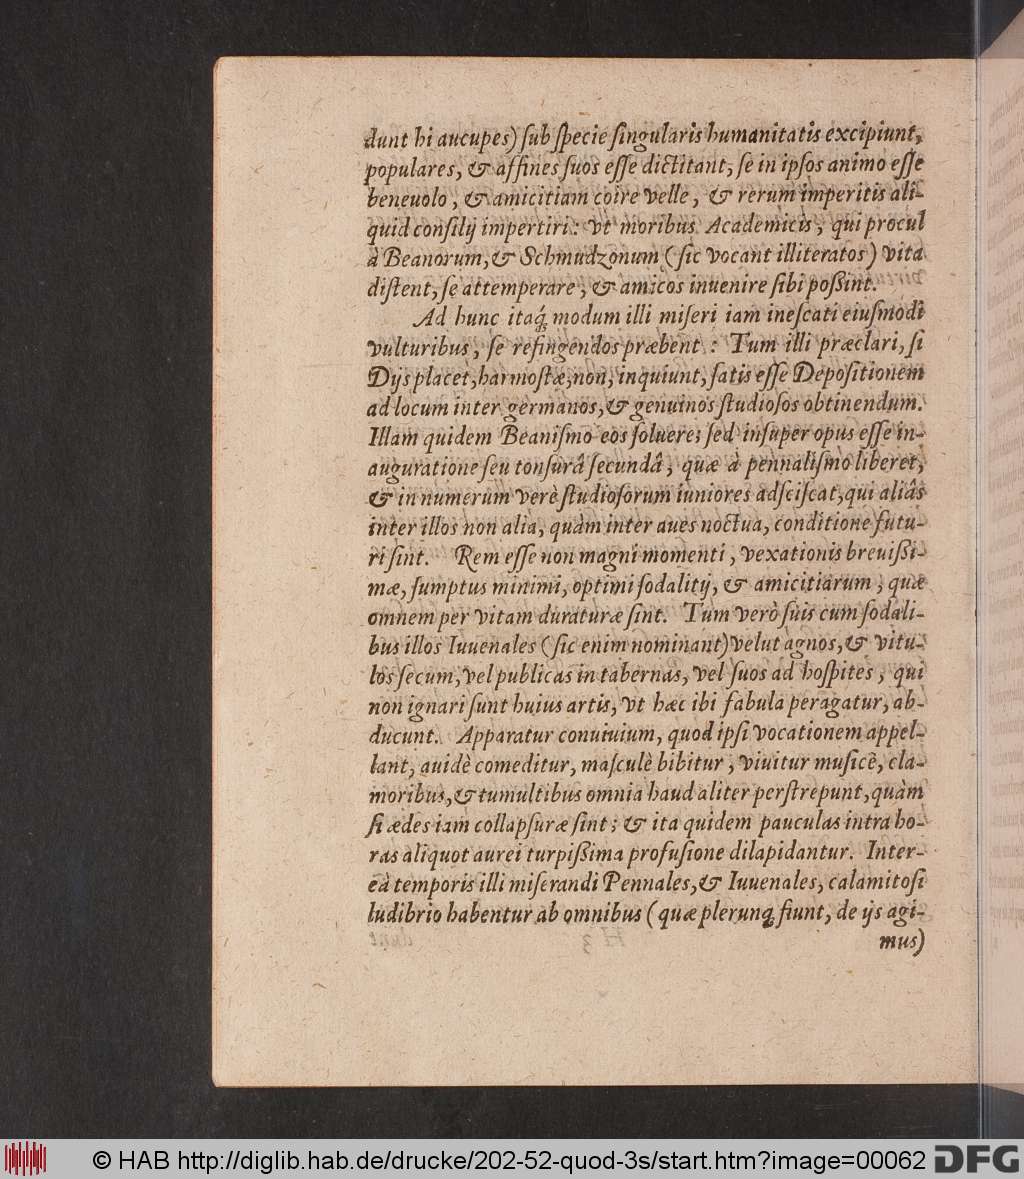 dunt hi aucupes) ſub ſpecie ſingularis humanitatis excipiunt,
populares, & affines ſuos eſſe dictitant, ſe in ipſos animo eſſe
beneuolo, & amicitiam coire velle, & rerum imperitis ali-
quid conſilij impertiri: vt moribus Academicis, qui procul
à Beanorum, & Schmudzonum (ſic vocant illiteratos) vita
diſtent, ſe attemperare, & amicos inuenire ſibi poßint.
Ad hunc itaq́; modum illi miſeri iam ineſcati eiuſmodi
vulturibus, ſe refingendos præbent: Tum illi præclari, ſi
Dijs placet, harmoſtæ, non, inquiunt, ſatis eſſe Depoſitionem
ad locum inter germanos, & genuinos ſtudioſos obtinendum.
Illam quidem Beaniſmo eos ſoluere; ſed inſuper opus eſſe in-
auguratione ſeu tonſurâ ſecundâ, quæ à pennaliſmo liberet,
& in numerum verè ſtudioſorum iuniores adſciſcat, qui aliâs
inter illos non alia, quàm inter aues noctua, conditione futu-
ri ſint. Rem eſſe non magni momenti, vexationis breuißi-
mæ, ſumptus minimi, optimi ſodalitij, & amicitiarum, quæ
omnem per vitam duraturæ ſint. Tum verò ſuis cum ſodali-
bus illos Iuuenales (ſic enim nominant) velut agnos, & vitu-
los ſecum, vel publicas in tabernas, vel ſuos ad hoſpites, qui
non ignari ſunt huius artis, vt hæc ibi fabula peragatur, ab-
ducunt. Apparatur conuiuium, quod ipſi vocationem appel-
lant, auidè comeditur, maſculè bibitur, viuitur muſicè, cla-
moribus, & tumultibus omnia haud aliter perſtrepunt, quàm
ſi ædes iam collapſuræ ſint; & ita quidem pauculas intra ho-
ras aliquot aurei turpißima profuſione dilapidantur. Inter-
eà temporis illi miſerandi Pennales, & Iuuenales, calamitoſi
ludibrio habentur ab omnibus (quæ plerunq; fiunt, de ijs agi-
mus)
© HAB http://diglib.hab.de/drucke/202-52-quod-3s/start.htm?image=00062 DFG